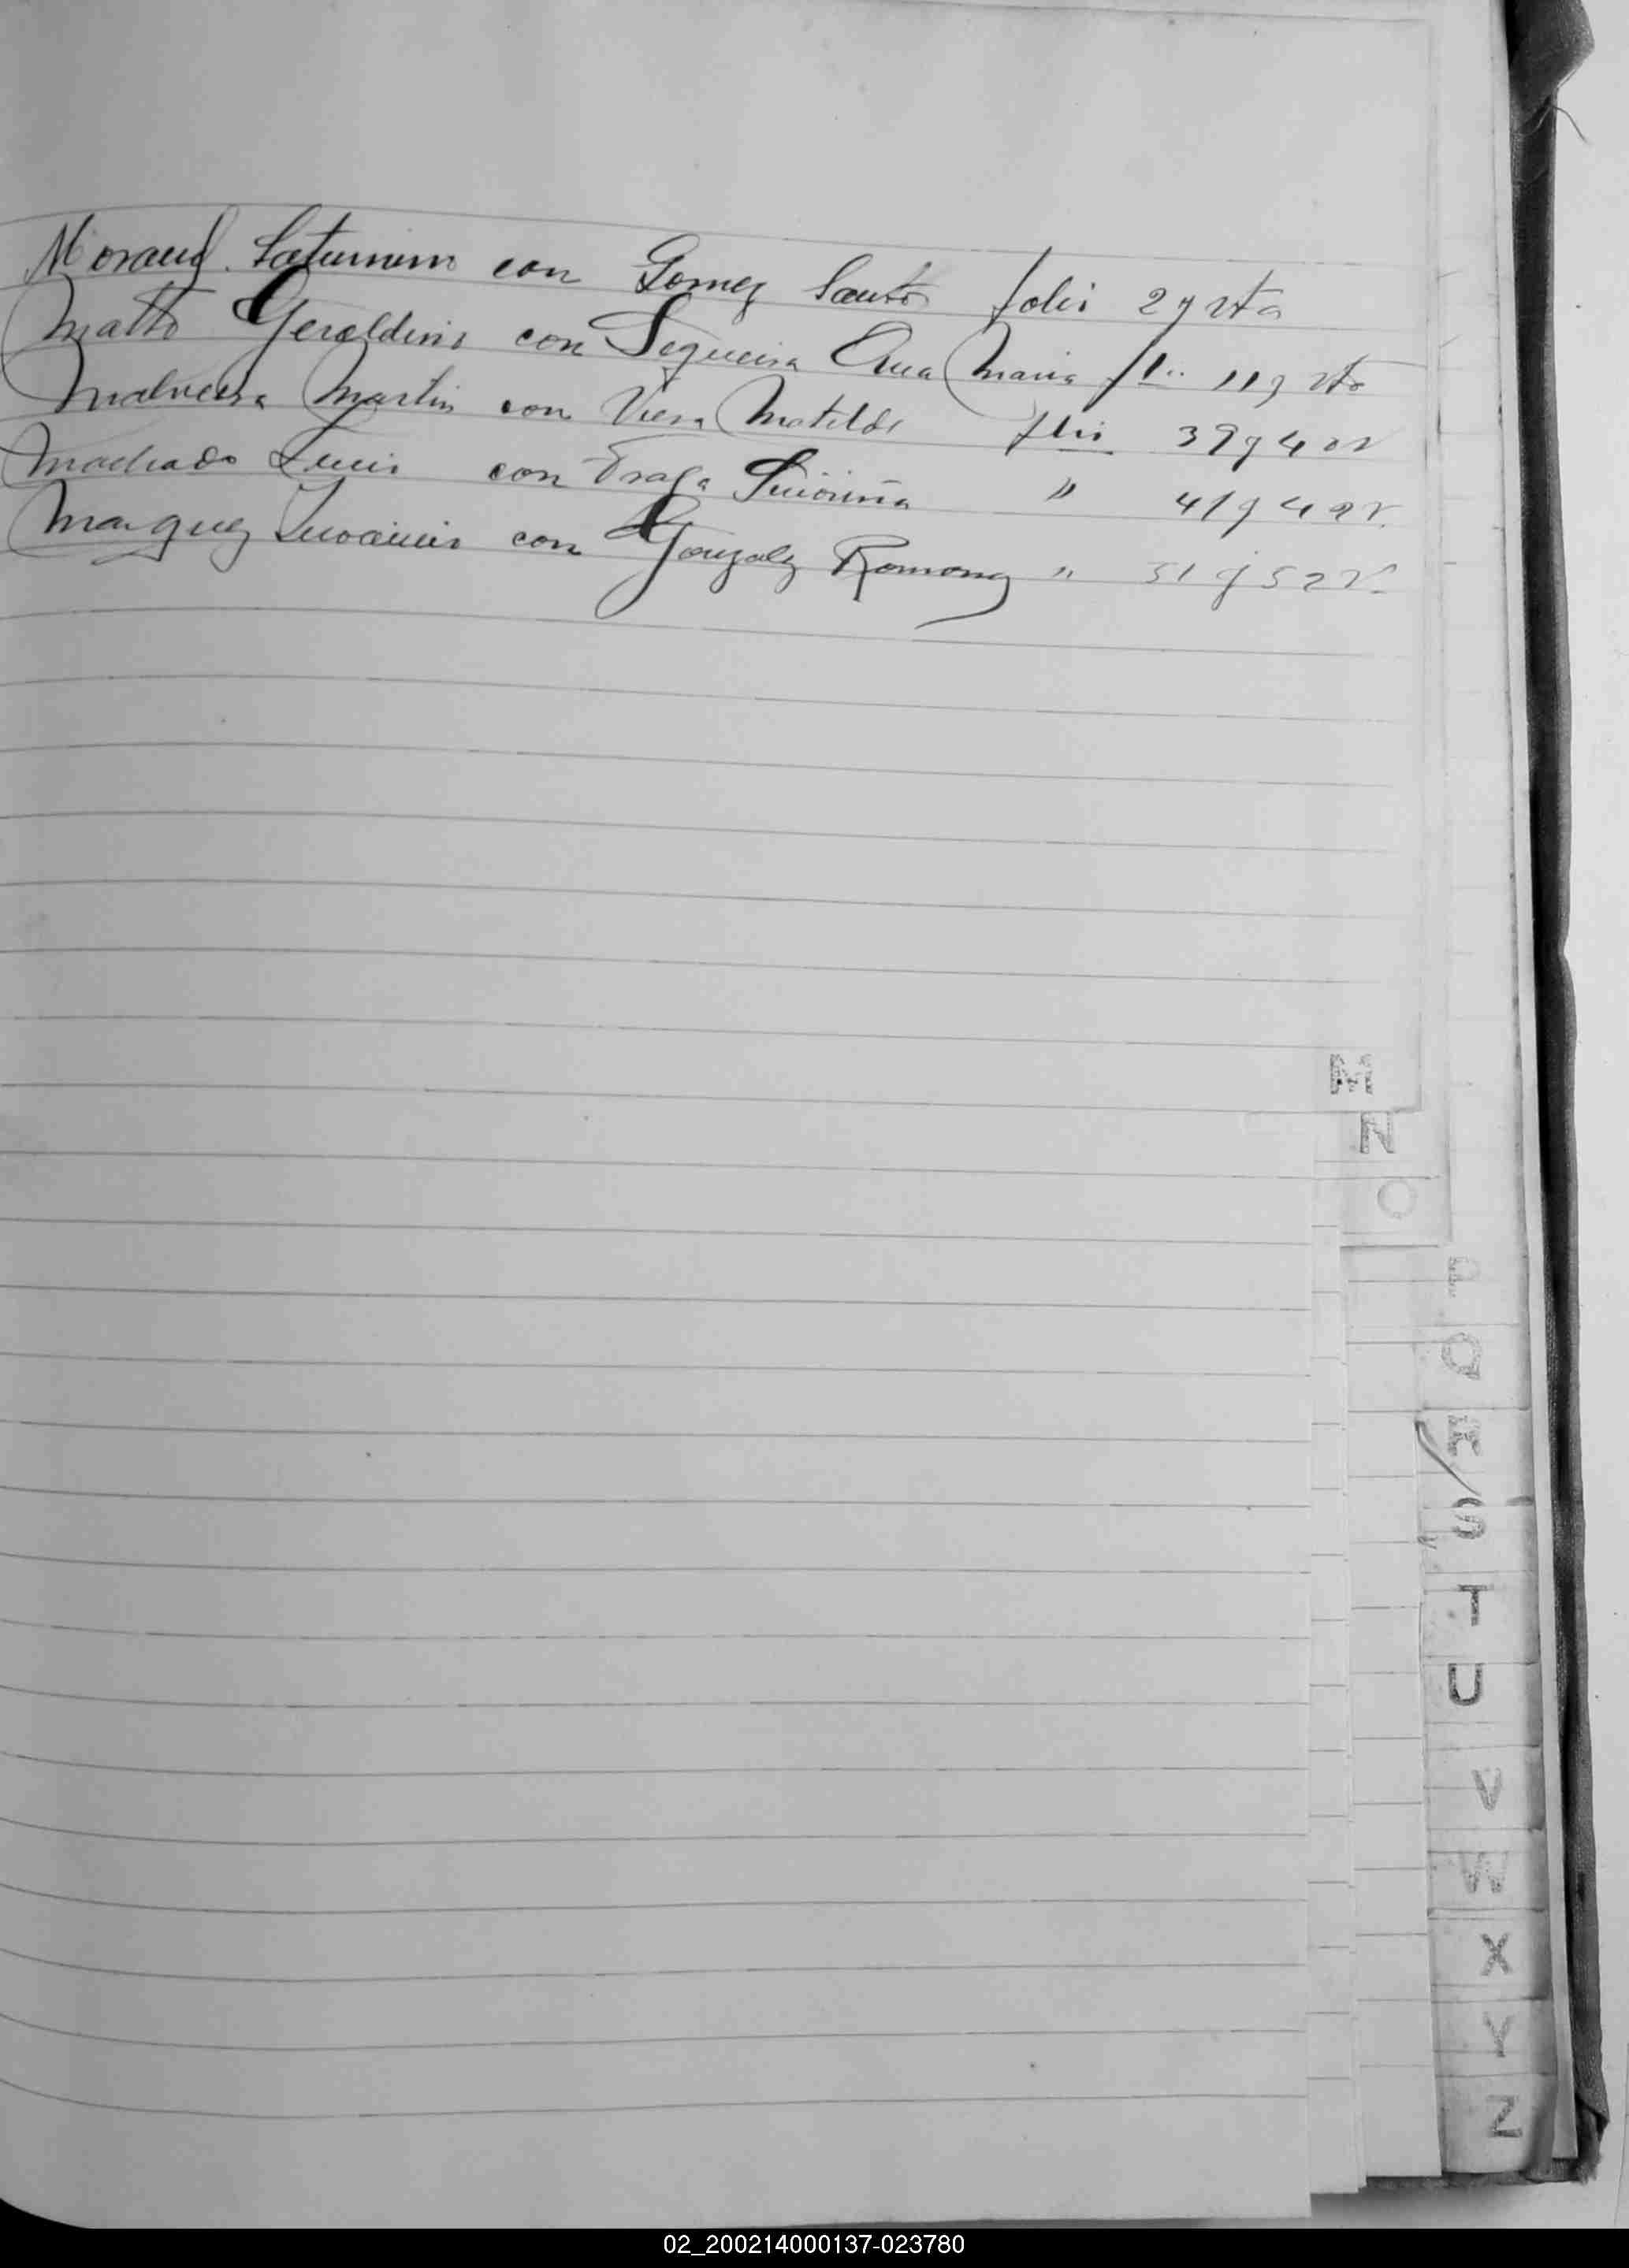 Saturnino con Gomez Santo folio 2 y vta
Matto Geraldino con Segueira Ana Maria flio 11 y vto
Malveira Martin con Viera Matilde flio 39 y 40 v
Machado Luis con Fraga " 41 y 42 v.
Marquez con Gonzalez Romona " 51 y 52 v.
M
N
O
P
Q
R
S
T
U
V
W
X
Y
Z
02_200214000137-023780